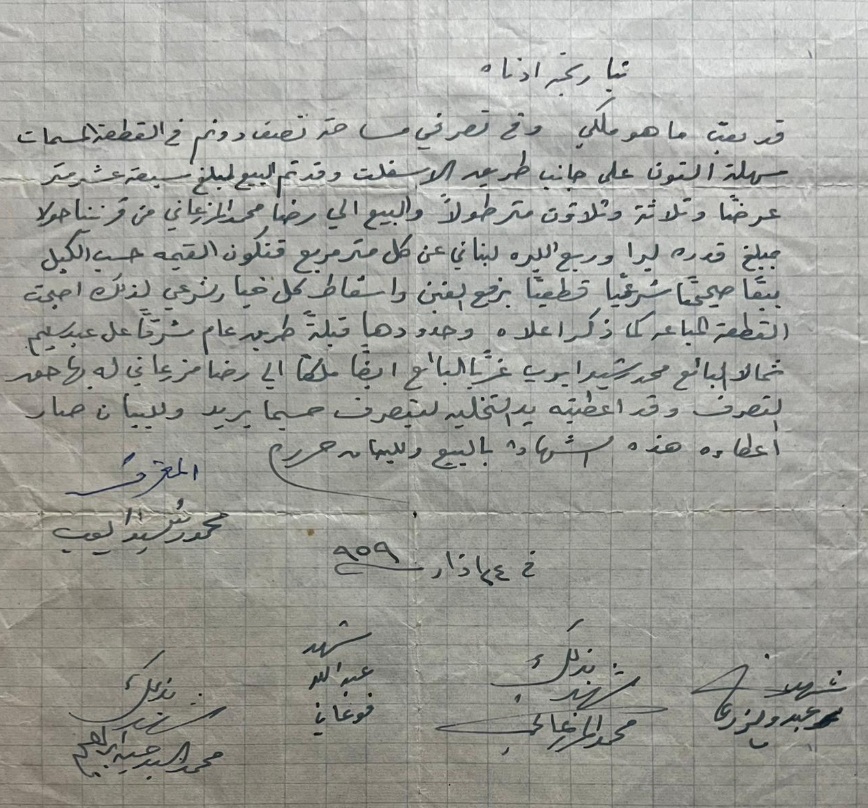 بتاريخه ادناه
قد بعت ما هو ملكي وفي تصرفي مساحة نصف دونم في القطعة المسمات
سهلة التون على جانب طريق الاسفلت وقد تم البيع لمبلغ سبعة عشر متر
عرضًا وثلاثة وثلاثون متر طولاً والبيع الي رضا محمد المزرعاني من قريتنا حولا
مبلغ قدره ليرا وربع اليره لبناني عن كل متر مربع فتكون القيمه حسب الكيل
بيعًا صحيحًا شرعيًا قطعيًا برفع الغبن واسقاط كل خيار شرعي لذلك اصبحت
القطعة المباعه كما ذكر اعلاه وحدودها قبلةً طريق عام شرقًا علي عبد كريم
شمالا البائع محمد رشيد ايوب غربًا البائع ايضًا ملكًا الي رضا مزرعاني له بها حق
التصرف وقد اعطيته يد التخليه ليتصرف حسبما يريد وللبيان صار
اعطاءه هذه الشهادة بالبيع وللبيان حرر
المقر
محمد رشيد ايوب
في ٢٤ اذار ٩٥٩
شهد
عبد
بذلك
شهد
محمد المزرعاني
شهد
عبد الله
فوعاني
بذلك
شهد
محمد السيد ابراهيم